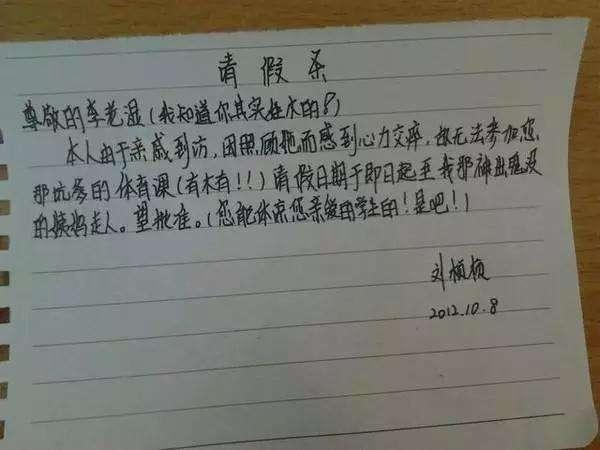 请假条
尊敬的李老湿(我知道你其实姓木的!)
本人由于亲戚到访,因照顾她而感到心力交瘁,故无法参加您
那坑爹的体育课(有木有!!)请假日期于即日起至我那神出鬼没
的姨妈走人。望批准。(您能体谅您亲爱的学生的!是吧!)
刘桢桢
2012.10.8